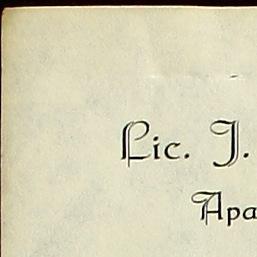 Lic. J.
Apa